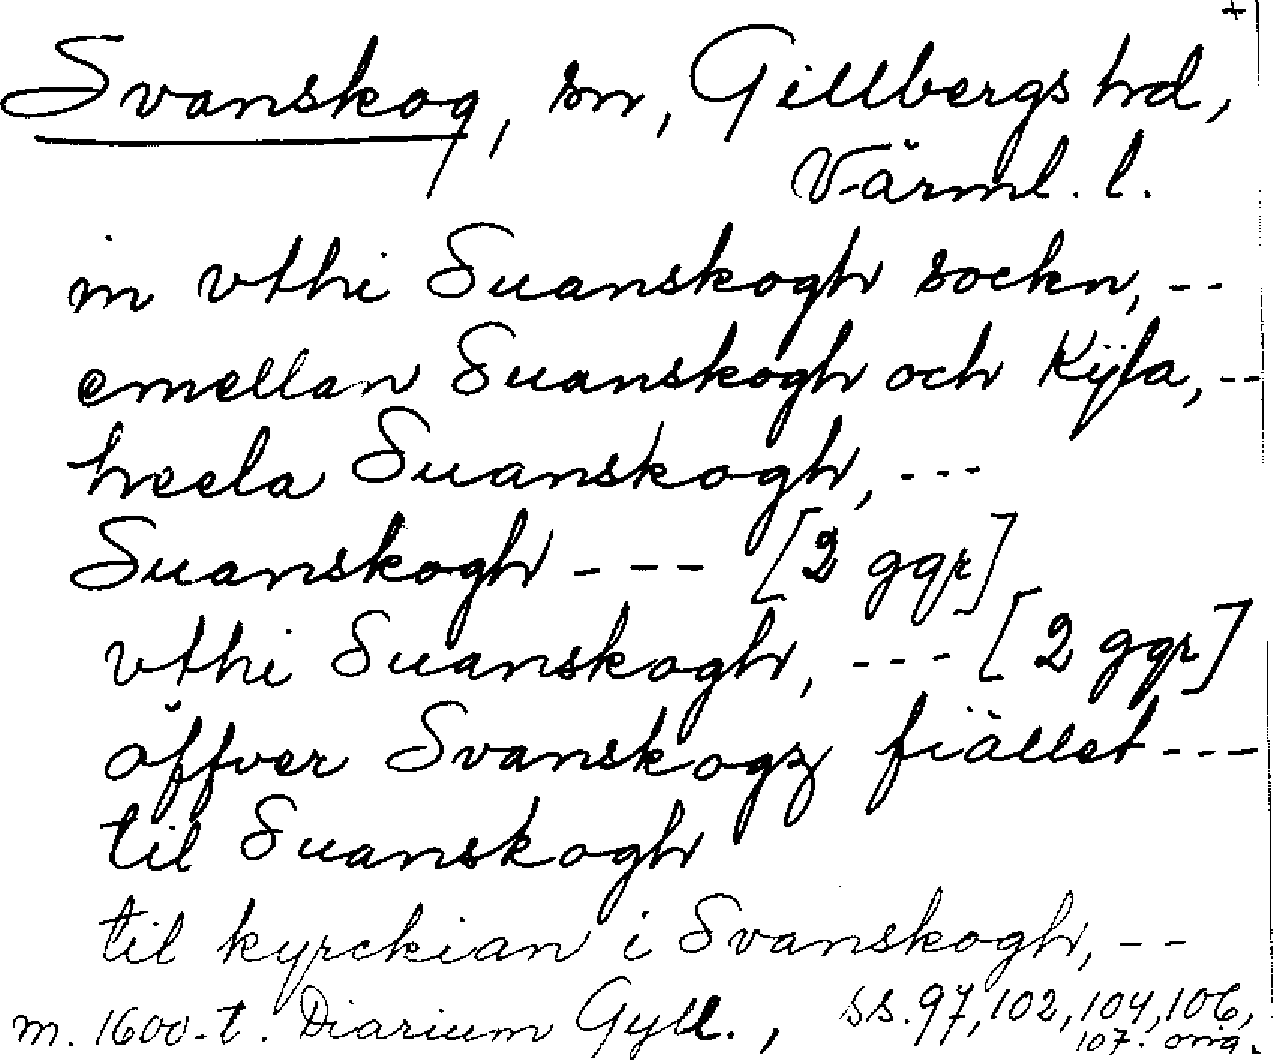 +
Svanskog, sn, Gillbergs hd,
Värml. l.
in vthi Suanskogh sockn, --
emellan Suanskogh och Kÿla, --
heela Suanskogh, ---
Suanskogh --- [2 ggr]
vthi Suanskogh, --- [2 ggr]
öffver Svanskogz fiället ---
til Suanskogh
til kyrckian i Svanskogh, --
m. 1600-t. Diarium Gyll., ss. 97, 102, 104, 106,
107. orig.